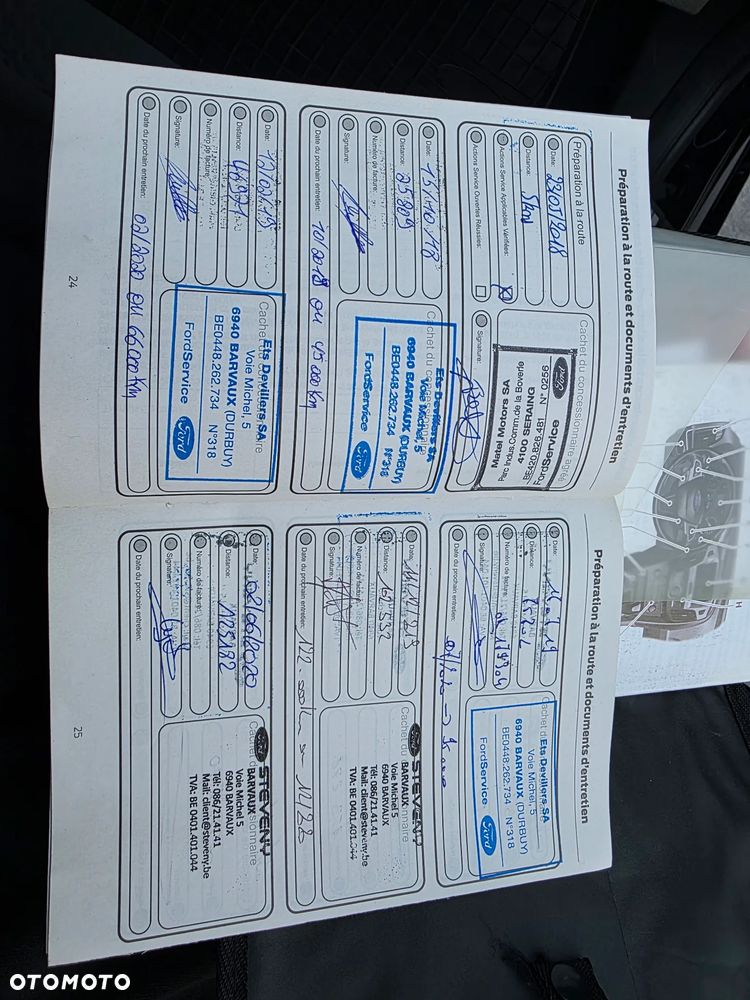 Préparation à la route et documents d'entretien
Préparation à la route
Date: 23/03/2018
Distance: 5km
Actions Service Applicables Vérifiées:
Actions Service Ouvertes Résolues:
Cachet du concessionnaire agréé
Ford
FordService
BE420.826.481 N° 20256
4100 SERAING
Parc Indus.Comm.de la Boverie
Matel Motors SA
Signature:
Date: 15/10/18
Distance: 25809
Numéro de facture:
Signature:
Date du prochain entretien: 10/2019 ou 45000 km
Cachet du concessionnaire
Ets Devillers SA
Voie Michel, 5
6940 BARVAUX (DURBUY)
BE0448.262.734 N°318
FordService
Ford
Date:
Distance:
Numéro de facture:
Signature:
Date du prochain entretien: 02/2020 ou 66000 km
Ets Devillers SA
Voie Michel, 5
6940 BARVAUX (DURBUY)
BE0448.262.734 N°318
FordService
Ford
24
Préparation à la route et documents d'entretien
Date:
Distance:
Numéro de facture:
Signature:
Date du prochain entretien:
Ets Devillers SA
Voie Michel, 5
6940 BARVAUX (DURBUY)
BE0448.262.734 N°318
FordService
Ford
Date:
Distance:
Numéro de facture:
Signature:
Date du prochain entretien: 122.000 km
Ford STEVENY
BARVAUX
Voie Michel 5
6940 BARVAUX
Tél: 086/21.41.41
Mail: client@steveny.be
TVA: BE 0401.401.044
Date: 08/06/2020
Distance:
Numéro de facture:
Signature:
Date du prochain entretien:
Ford STEVENY
BARVAUX
Voie Michel 5
6940 BARVAUX
Tél: 086/21.41.41
Mail: client@steveny.be
TVA: BE 0401.401.044
25
OTOMOTO